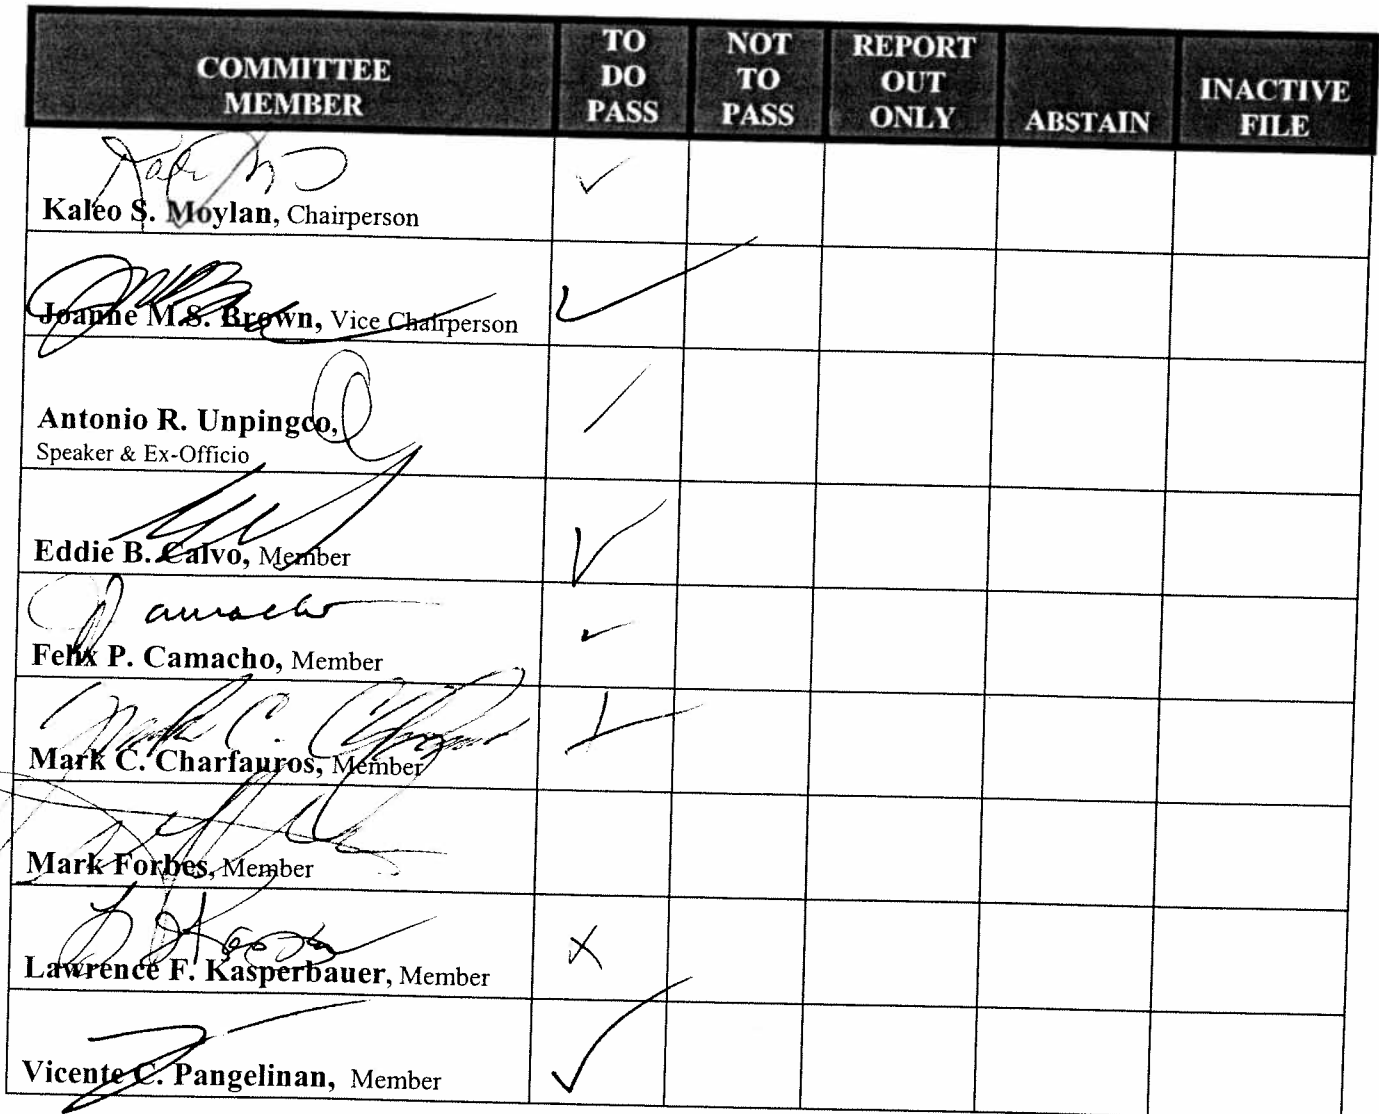 COMMITTEE MEMBER
TO DO PASS
NOT TO PASS
REPORT OUT ONLY
ABSTAIN
INACTIVE FILE
Kaleo S. Moylan, Chairperson
✓
Joanne M.S. Brown, Vice Chairperson
✓
Antonio R. Unpingco,
Speaker & Ex-Officio
/
Eddie B. Calvo, Member
✓
Camacho
Felix P. Camacho, Member
✓
Mark C. Charfauros
Mark C. Charfauros, Member
✓
Mark Forbes, Member
Lawrence F. Kasperbauer, Member
X
Vicente C. Pangelinan, Member
✓